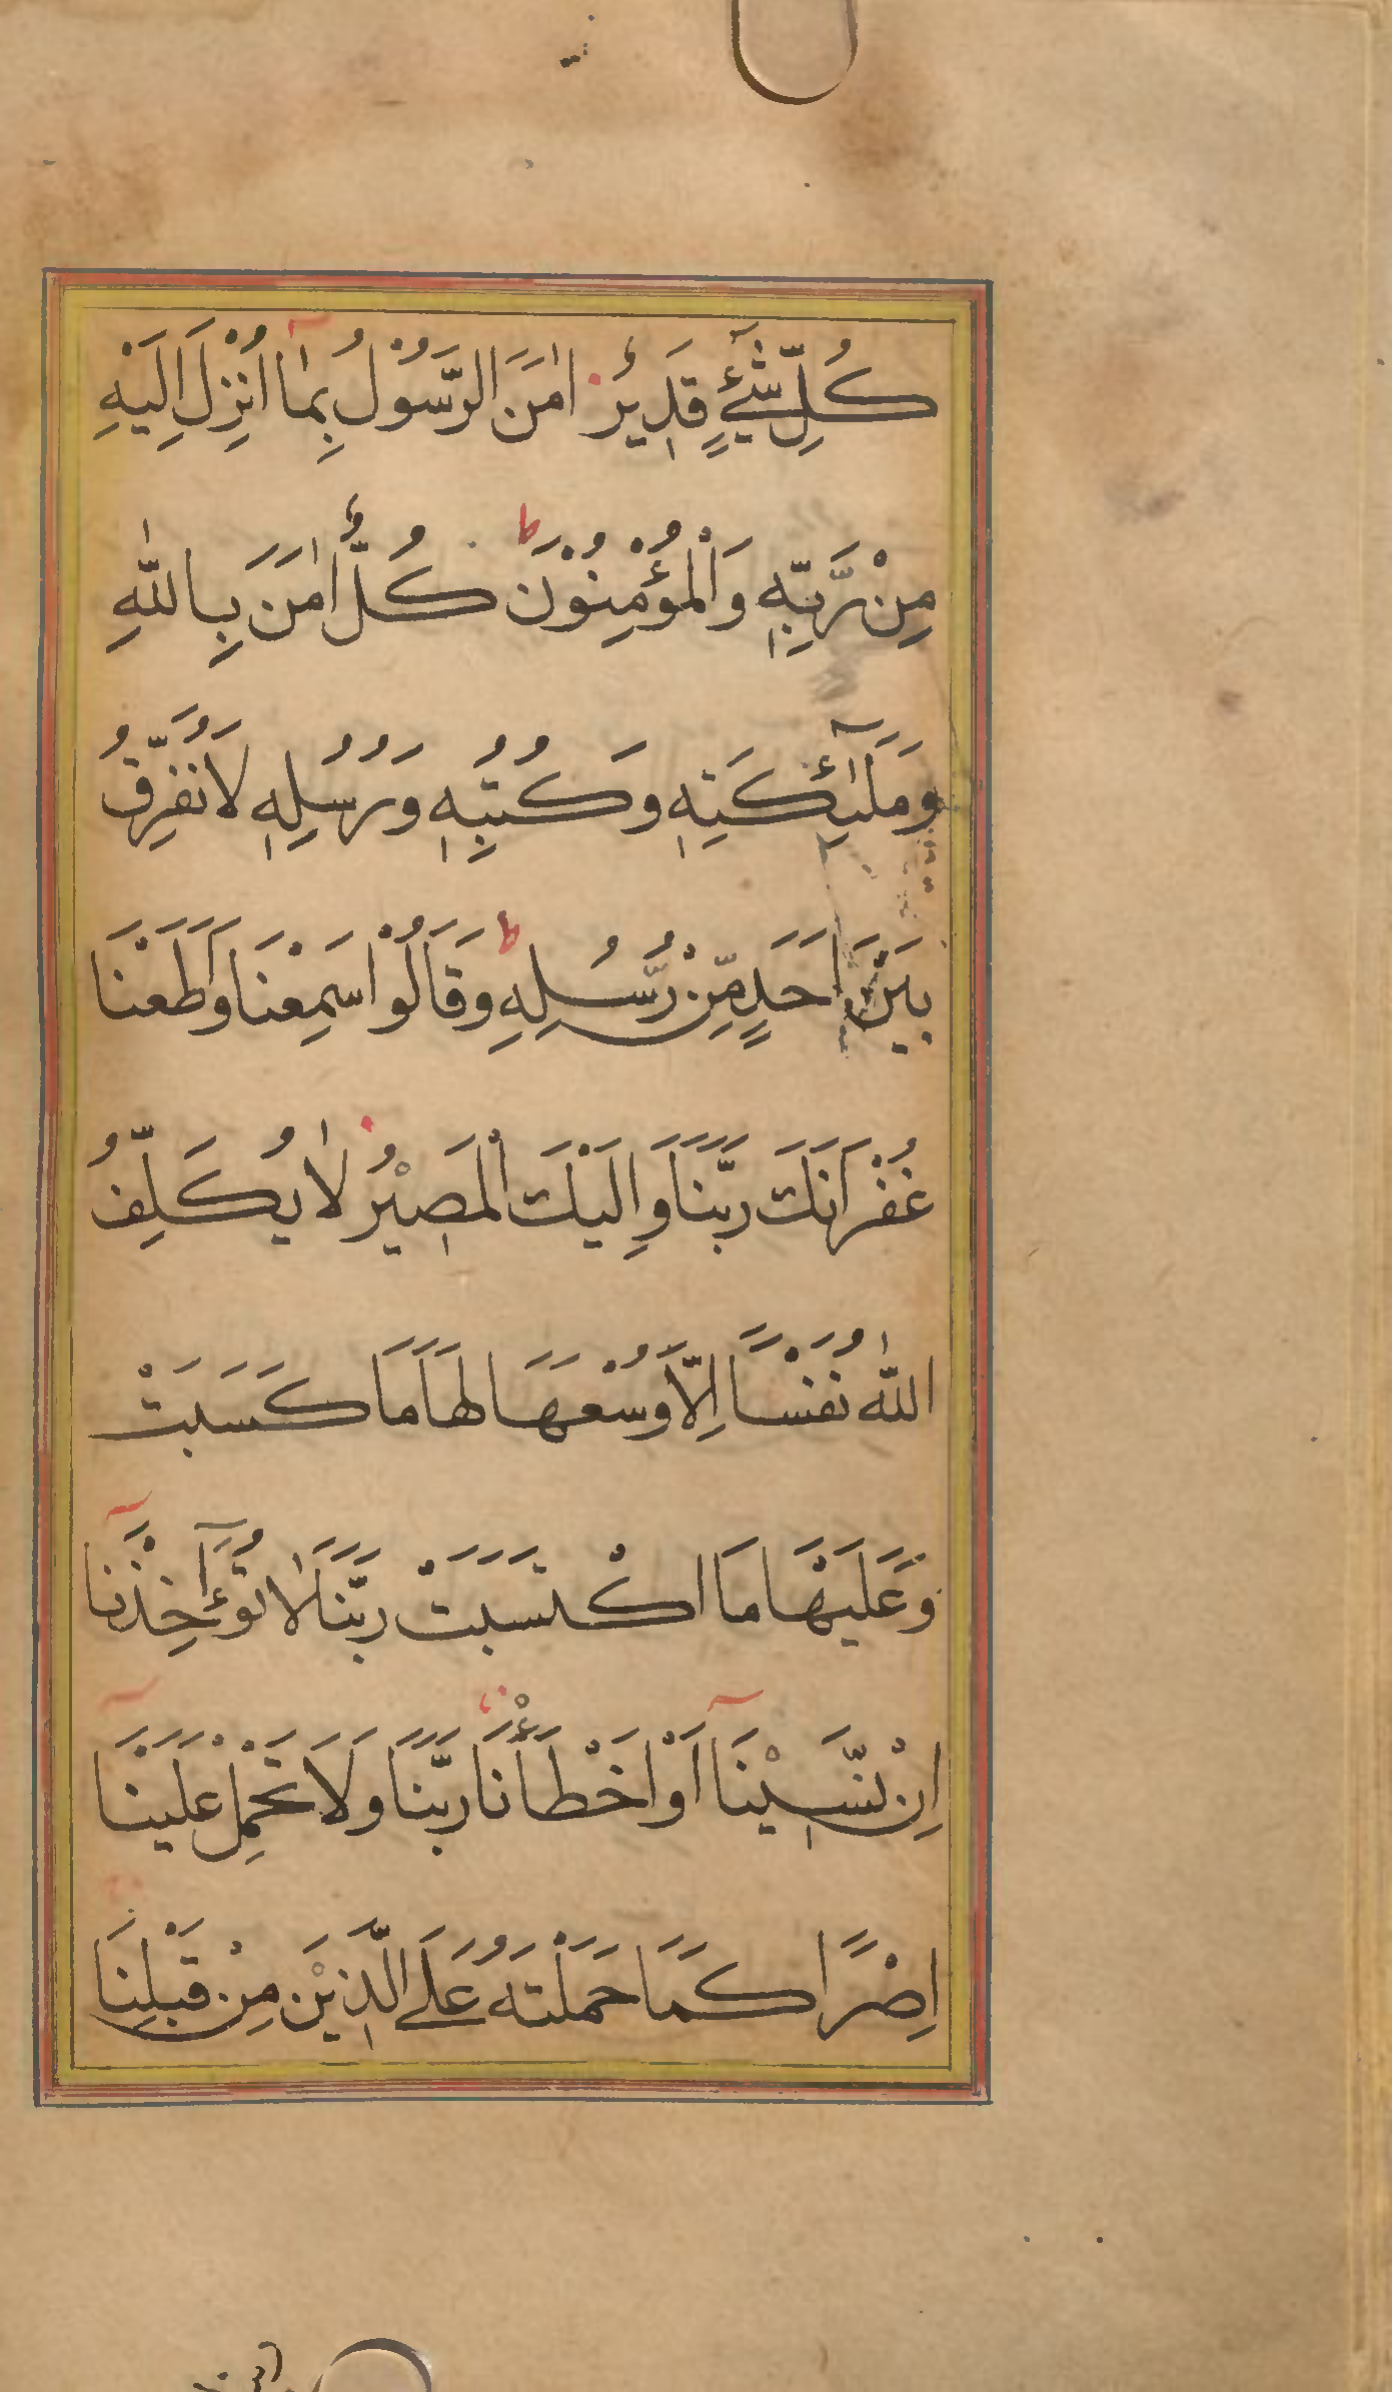 كُلِّ شَيْءٍ قَدِيرٌ اٰمَنَ الرَّسُوْلُ بِمَآ اُنْزِلَ اِلَيْهِ
مِنْ رَّبِّهٖ وَالْمُؤْمِنُوْنَ ط كُلٌّ اٰمَنَ بِاللّٰهِ
وَمَلٰٓئِكَتِهٖ وَكُتُبِهٖ وَرُسُلِهٖ لَا نُفَرِّقُ
بَيْنَ اَحَدٍ مِّنْ رُّسُلِهِ ط وَقَالُوْا سَمِعْنَا وَاَطَعْنَا
غُفْرَانَكَ رَبَّنَا وَاِلَيْكَ الْمَصِيْرُ لَا يُكَلِّفُ
اللّٰهُ نَفْسًا اِلَّا وُسْعَهَا لَهَا مَا كَسَبَتْ
وَعَلَيْهَا مَا اكْتَسَبَتْ رَبَّنَا لَا تُؤَٓاخِذْنَآ
اِنْ نَّسِيْنَآ اَوْ اَخْطَأْنَا رَبَّنَا وَلَا تَحْمِلْ عَلَيْنَآ
اِصْرًا كَمَا حَمَلْتَهُ عَلَى الَّذِيْنَ مِنْ قَبْلِنَا